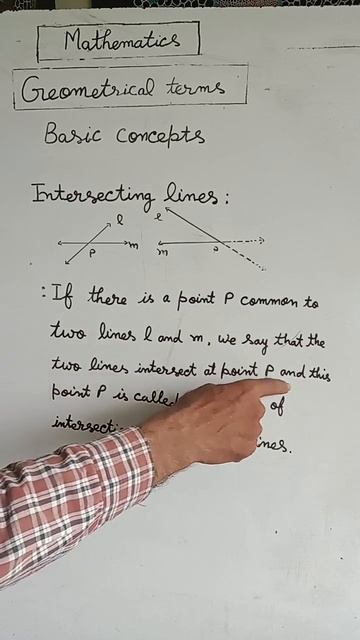 Mathematics
Geometrical terms
Basic concepts
Intersecting lines :
l
l
P
m
m
: If there is a point P common to
two lines l and m, we say that the
two lines intersect at point P and this
point P is called of
lines.